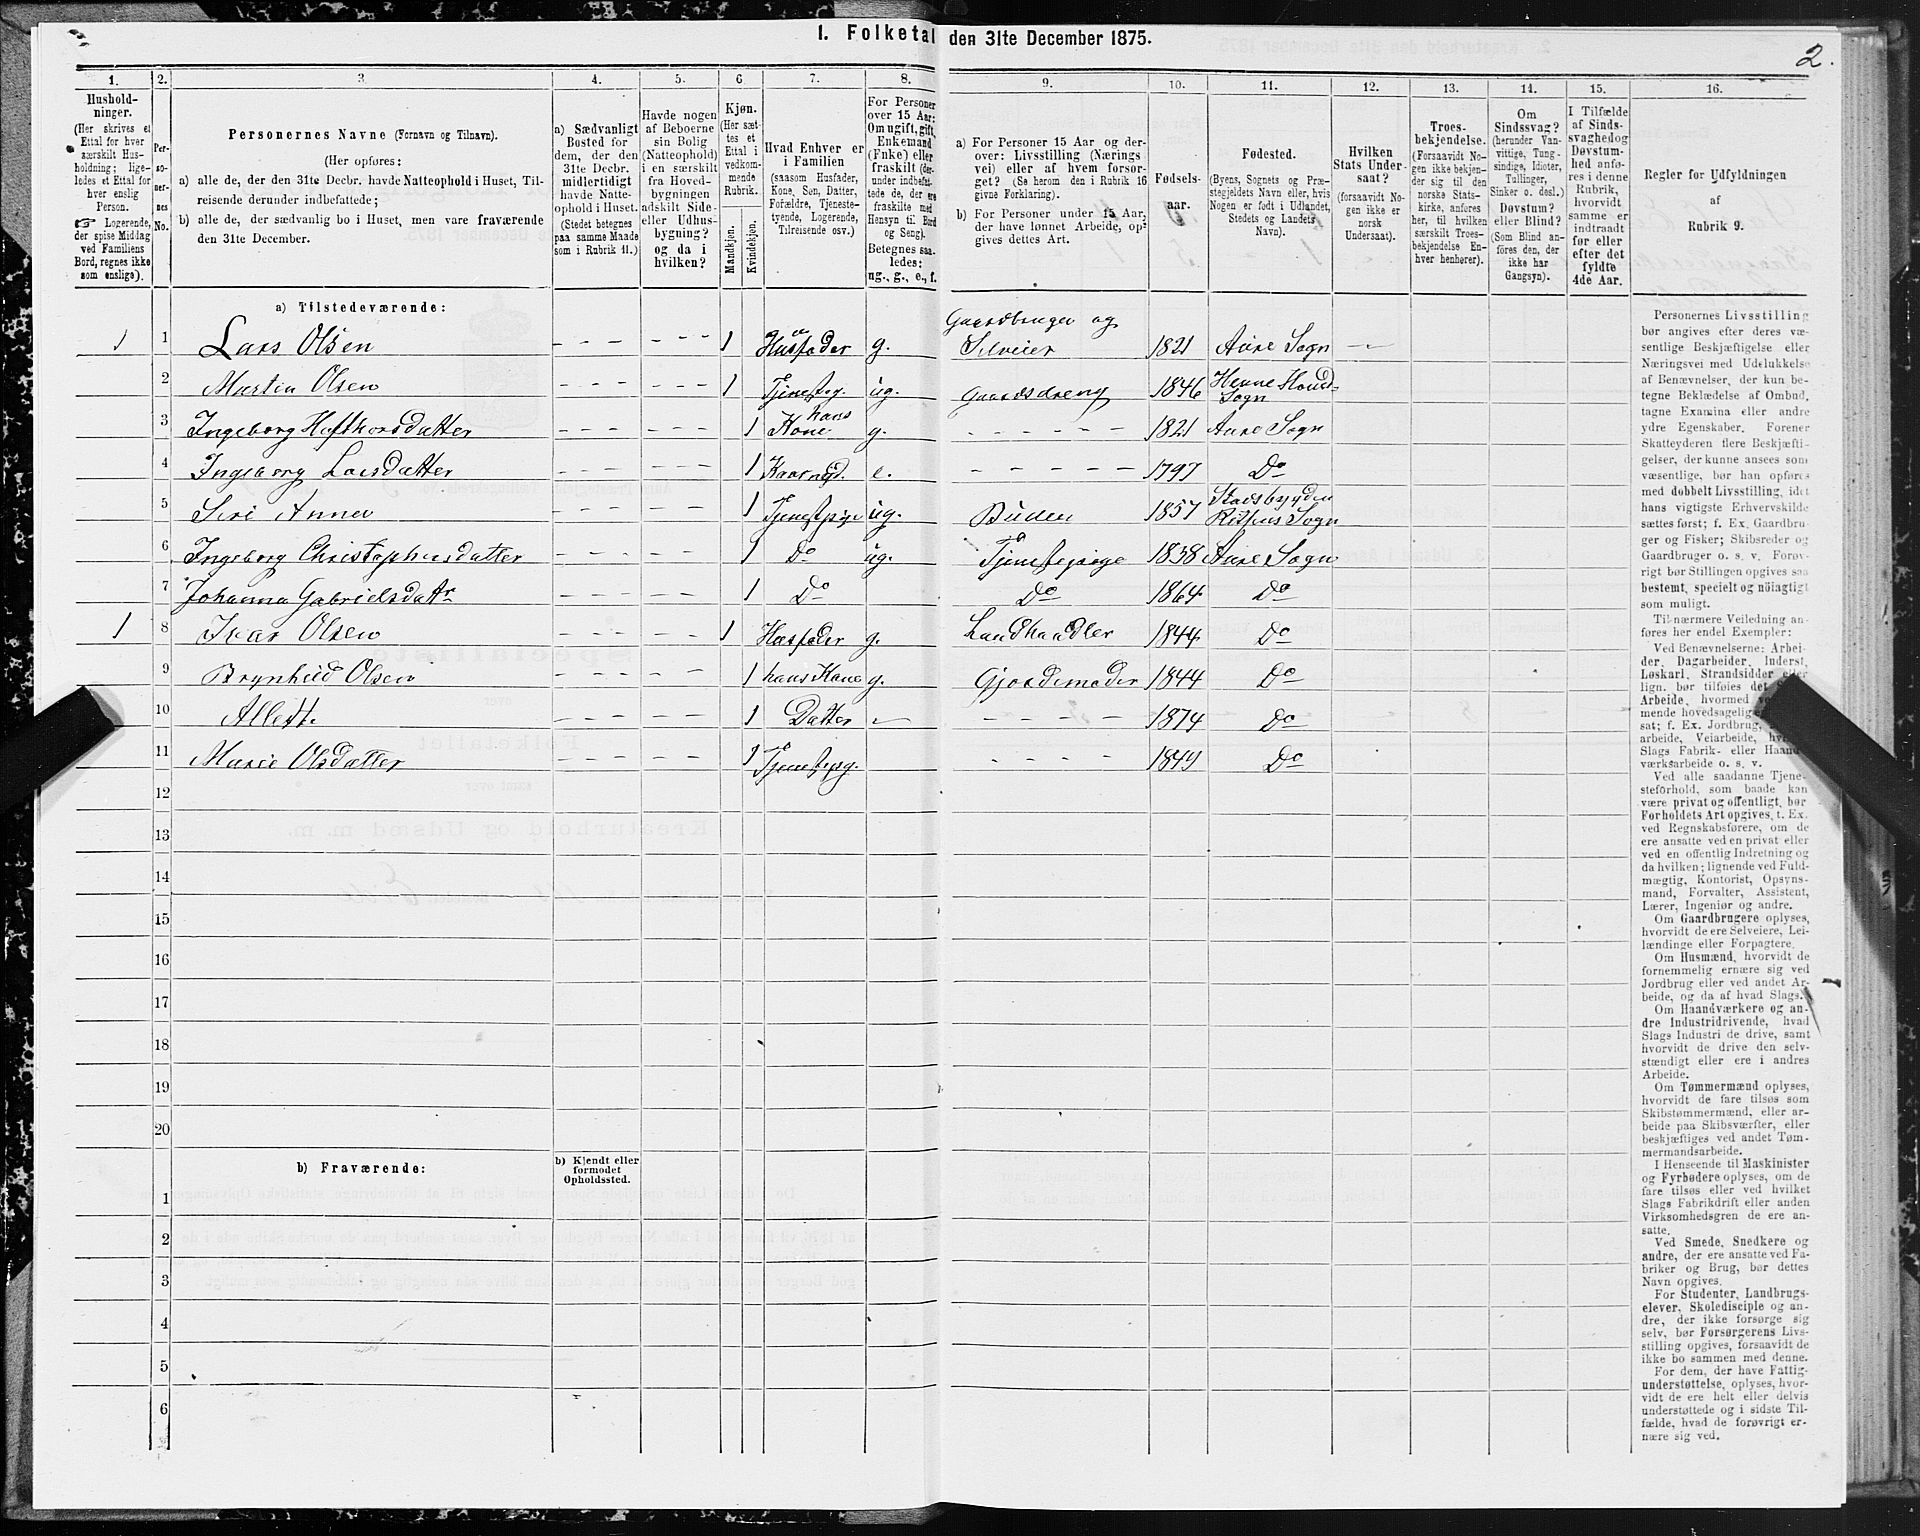 I. Folketal den 31te December 1875.
2.
1.
Hushold-
ninger.
(Her skrives et
Ettal for hver
særskilt Hus-
holdning; lige-
ledes et Ettal for
hver enslig
Person.
☞ Logerende,
der spise Middag
ved Familiens
Bord, regnes ikke
som enslige).
2.
Per-
so-
ner-
nes
No.
3.
Personernes Navne (Fornavn og Tilnavn).
(Her opføres:
a) alle de, der den 31te Decbr. havde Natteophold i Huset, Til-
reisende derunder indbefattede;
b) alle de, der sædvanlig bo i Huset, men vare fraværende
den 31te December.
4.
a) Sædvanligt
Bosted for
dem, der den
31te Decbr.
midlertidigt
havde Natte-
ophold i Huset.
(Stedet betegnes
paa samme Maade
som i Rubrik 11.)
5.
Havde nogen
af Beboerne
sin Bolig
(Natteophold)
i en særskilt
fra Hoved-
bygningen
adskilt Side-
eller Udhus-
bygning?
og da i
hvilken?
6
Kjøn.
(Her sæt-
tes et
Ettal i
vedkom-
mende
Rubrik.
Mandkjøn.
Kvindekjøn.
7.
Hvad Enhver er
i Familien
(saasom Husfader,
Kone, Søn, Datter,
Forældre, Tjeneste-
tyende, Logerende,
Tilreisende osv.)
8.
For Personer
over 15 Aar:
Om ugift, gift,
Enkemand
(Enke) eller
fraskilt (der-
under indbefat-
tede de, der ere
fraskilte med
Hensyn til Bord
og Seng).
Betegnes saa-
ledes:
ug., g., e., f.
9.
a) For Personer 15 Aar og der-
over: Livsstilling (Nærings
vei) eller af hvem forsør-
get? (Se herom den i Rubrik 16
givne Forklaring).
b) For Personer under 15 Aar,
der have lønnet Arbeide, op-
gives dettes Art.
10.
Fødsels-
aar.
11.
Fødested.
(Byens, Sognets og Præ-
stegjeldets Navn eller, hvis
Nogen er født i Udlandet,
Stedets og Landets
Navn).
12.
Hvilken
Stats Under-
saat?
(forsaavidt No-
gen ikke er
norsk
Undersaat).
13.
Troes-
bekjendelse.
(Forsaavidt No-
gen ikke bekjen-
der sig til den
norske Stats-
kirke, anføres
her, til hvilken
særskilt Troes-
bekjendelse En-
hver henhører).
14.
Om
Sindssvag?
(herunder Van-
vittige, Tung-
sindige, Idioter,
Tullinger,
Sinker o. desl.)
Døvstum?
eller Blind?
(Som Blind an-
føres den, der
ikke har
Gangsyn).
15.
I Tilfælde
af Sinds-
svaghed og
Døvstum-
hed anfø-
res i denne
Rubrik,
hvorvidt
samme er
indtraadt
før eller
efter det
fyldte
4de Aar.
16.
Regler for Udfyldningen
af
Rubrik 9.
a) Tilstedeværende:
1 1 Lars Olsen 1 Husfader g. Gaardbruger og Selveier 1821 Aure Sogn
2 Martin Olsen 1 Tjenestg. ug. Gaardsdreng 1846 Hevne Sogn
3 Ingeborg Hafthorsdatter 1 hans Kone g. 1821 Aure Sogn
4 Ingeborg Larsdatter 1 e. 1797 Do
5 Siri Anna 1 Tjenestpige ug. Buden 1857 Stadsbygden Sogn
6 Ingeborg Christophersdatter 1 Do ug. Tjenestepige 1838 Aure Sogn
7 Johanna Gabrielsdattr 1 Do Do 1864 Do
1 8 Ivar Olsen 1 Husfader g. Landhandler 1844 Do
9 Brynhild Olsen 1 hans Kone g. Gjordemoder 1844 Do
10 1 Datter 1874 Do
11 Marie Olsdatter 1 Tjenestepg. 1849 Do
12
13
14
15
16
17
18
19
20
b) Fraværende:
b) Kjendt eller
formodet
Opholdssted.
1
2
3
4
5
6
Personernes Livsstilling
bør angives efter deres væ-
sentlige Beskjæftigelse eller
Næringsvei med Udelukkelse
af Benævnelser, der kun be-
tegne Beklædelse af Ombud,
tagne Examina eller andre
ydre Egenskaber. Forener
Skatteyderen flere Beskjæfti-
gelser, der kunne ansees som
væsentlige, bør han opføres
med dobbelt Livsstilling, idet
hans vigtigste Erhvervskilde
sættes først; f. Ex. Gaardbru-
ger og Fisker; Skibsreder og
Gaardbruger o. s. v. Forøv-
rigt bør Stillingen opgives saa
bestemt, specielt og nøiagtigt
som muligt.
Til nærmere Veiledning an-
føres her endel Exempler:
Ved Benævnelserne: Arbei-
der, Dagarbeider, Inderst,
Løskarl, Strandsidder eller
lign. bør tilføies det
Arbeide, hvormed
mende hovedsagelig
sat; f. Ex. Jordbrug,
arbeide, Veiarbeide,
Slags Fabrik- eller Haand-
værksarbeide o. s. v.
Ved alle saadanne Tjene-
steforhold, som baade kan
være privat og offentligt, bør
Forholdets Art opgives, t. Ex.
ved Regnskabsførere, om de
ere ansatte ved en privat eller
ved en offentlig Indretning og
da hvilken; lignende ved Fuld-
mægtig, Kontorist, Opsyns-
mand, Forvalter, Assistent,
Lærer, Ingeniør og andre.
Om Gaardbrugere oplyses,
hvorvidt de ere Selveiere, Lei-
lændinge eller Forpagtere.
Om Husmænd, hvorvidt de
fornemmelig ernære sig ved
Jordbrug eller ved andet Ar-
beide, og da af hvad Slags.
Om Haandværkere og an-
dre Industridrivende, hvad
Slags Industri de drive, samt
hvorvidt de drive den selv-
stændigt eller ere i andres
Arbeide.
Om Tømmermænd oplyses,
hvorvidt de fare tilsøs som
Skibstømmermænd, eller ar-
beide paa Skibsværfter, eller
beskjæftiges ved andet Tøm-
mermandsarbeide.
I Henseende til Maskinister
og Fyrbødere oplyses, om de
fare tilsøs eller ved hvilket
Slags Fabrikdrift eller anden
Virksomhedsgren de ere an-
satte.
Ved Smede, Snedkere og
andre, der ere ansatte ved Fa-
briker og Brug, bør dettes
Navn opgives.
For Studenter, Landbrugs-
elever, Skoledisciple og an-
dre, der ikke forsørge sig
selv, bør Forsørgerens Livs-
stilling opgives, forsaavidt de
ikke bo sammen med denne.
For dem, der have Fattig-
understøttelse, oplyses, hvor-
vidt de ere helt eller delvis
understøttede og i sidste Til-
fælde, hvad de forøvrigt er-
nære sig ved.